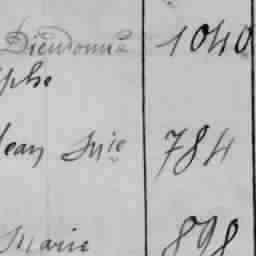 Dieudonné 1040
phe
Jean Mie 784
Marie 898